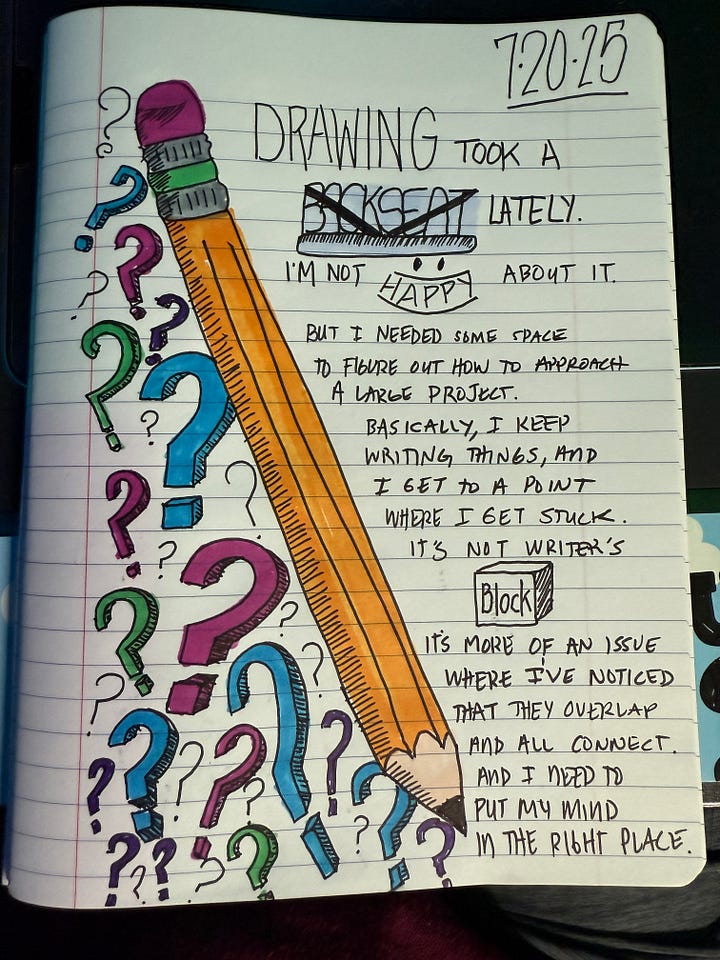 7·20·25
DRAWING TOOK A
BACKSEAT LATELY.
I'M NOT HAPPY ABOUT IT.
BUT I NEEDED SOME SPACE
TO FIGURE OUT HOW TO APPROACH
A LARGE PROJECT.
BASICALLY, I KEEP
WRITING THINGS, AND
I GET TO A POINT
WHERE I GET STUCK.
IT'S NOT WRITER'S
Block
IT'S MORE OF AN ISSUE
WHERE I'VE NOTICED
THAT THEY OVERLAP
AND ALL CONNECT.
AND I NEED TO
PUT MY MIND
IN THE RIGHT PLACE.